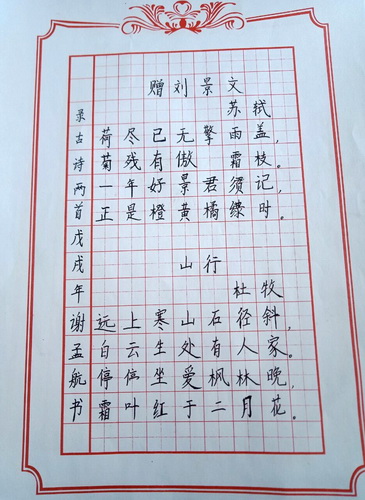 赠刘景文
苏轼
荷尽已无擎雨盖，
菊残有傲 霜枝。
一年好景君须记，
正是橙黄橘绿时。
山行
杜牧
远上寒山石径斜，
白云生处有人家。
停坐爱枫林晚，
霜叶红于二月花。
录古诗两首戊戌年谢孟航书